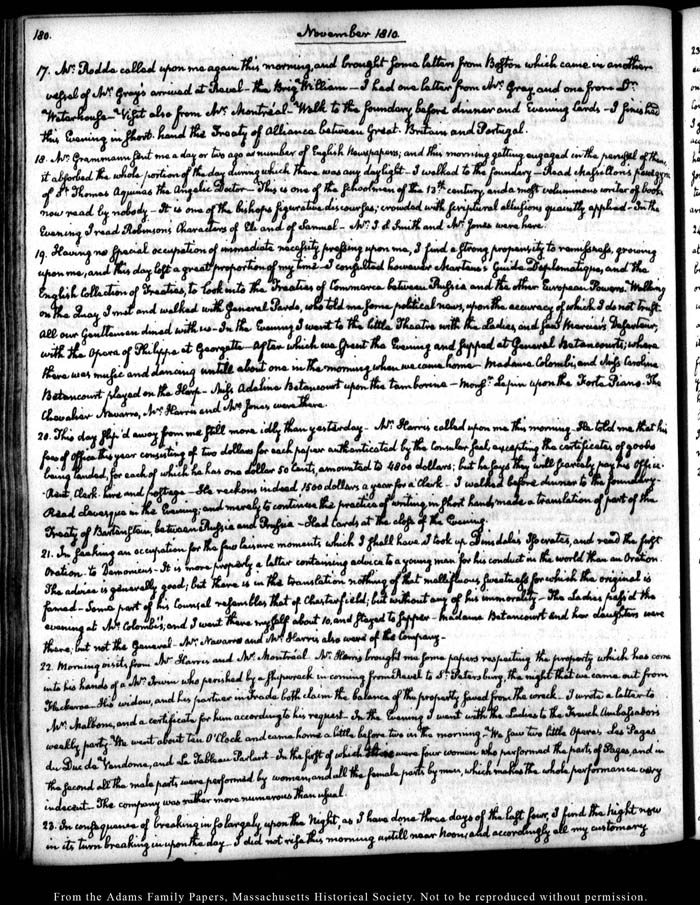 180.
November 1810.
17. Mr. Rodde called upon me again this morning, and brought some letters from Boston which came in another
vessel of Mr. Gray's arrived at Reval - the Brig William - I had one letter from Mr. Gray and one from Dr.
Waterhouse - Visit also from Mr. Montréal - Walk to the foundary before dinner and Evening Cards - I finished
this Evening in short-hand the Treaty of Alliance between Great-Britain and Portugal.
18. Mr. Grammann sent me a day or two ago a number of English Newspapers; and this morning getting engaged in the perusal of them,
it absorbed the whole portion of the day during which there was any daylight - I walked to the foundery - Read Massillon's panegyric
of St. Thomas Aquinas the Angelic Doctor - This is one of the schoolmen of the 13th. century, and a most voluminous writer of books
now read by nobody - It is one of the bishop's figurative discourses; crowded with scriptural allusions quaintly applied - In the
Evening I read Robinson's Characters of Eli and of Samuel - Mr. I. d. Smith and Mr. Jones were here.
19. Having no special occupation of immediate necessity pressing upon me, I find a strong propensity to remissness, growing
upon me, and this day lost a great proportion of my time - I consulted however Martens's Guide Diplomatique, and the
English Collection of Treaties, to look into the Treaties of Commerce between Russia and the other European Powers. Walking
on the Quay I met and walked with General Pardo, who told me some political news, upon the accuracy of which I do not trust.
All our Gentlemen dined with us - In the Evening I went to the little Theatre with the Ladies, and saw Mercier's Déserteur,
with the Opera of Philippe et Georgette - After which we spent the Evening and supped at General Betancourt's; where
there was music and dancing untill about one in the morning when we came home - Madame Colombi, and Miss Caroline
Betancourt played on the Harp - Miss Adeline Betancourt upon the tamborine - Monsr. Lapin upon the Forte Piano - The
Chevalier Navarro, Mr. Harris and Mr. Jones were there.
20. This day slip'd away from me still more idly than yesterday - Mr. Harris called upon me this morning. He told me that his
fees of office this year consisting of two dollars for each paper authenticated by the Consular seal, excepting the certificates of goods
being landed, for each of which he has one dollar 50 Cents, amounted to 4000 dollars; but he says they will scarcely pay his Office-
Rent, Clerk-hire and postage - He reckons indeed 1500 dollars a year for a Clerk - I walked before dinner to the foundery -
Read in the Evening; and merely to continue the practice of writing in short hand, made a translation of part of the
Treaty of Bartenstein, between Russia and Prussia - Had Cards at the close of the Evening.
21. In seeking an occupation for the few leisure moments which I shall have I took up Dinsdale's Isocrates, and read the first
Oration to Demonicus - It is more properly a letter containing advice to a young man for his conduct in the world than an Oration.
The advice is generally good; but there is in the translation nothing of that mellifluous sweetness for which the original is
famed - Some part of his Counsel resembles that of Chesterfield; but without any of his immorality - The Ladies pass'd the
evening at Mr. Colombi's; and I went there myself about 10, and stayed to supper - Madame Betancourt and her daughters were
there, but not the General - Mr. Navarro and Mr. Harris also were of the Company -
22. Morning visits, from Mr. Harris and Mr. Montréal. Mr. Harris brought me some papers respecting the property which has come
into his hands of a Mr. Irwin who perished by a shipwreck in coming from Reval to St. Petersburg, the night that we came out from
His widow, and his partner in trade both claim the balance of the property saved from the wreck. I wrote a letter to
Mr. Maltzou, and a certificate for him according to his request - In the Evening I went with the Ladies to the French Ambassador's
weekly party - We went about ten O'Clock and came home a little before two in the morning. We saw two little Operas, Les Pages
du Duc de Vendome, and Le Tableau Parlant - In the first of which were four women who performed the parts of Pages, and in
the second all the male parts were performed by women, and all the female parts by men, which makes the whole performance very
indecent - The company was rather more numerous than usual.
23. In consequence of breaking in so largely upon the Night, as I have done three days of the last four, I find the night now
in its turn breaking in upon the day - I did not rise this morning untill near Noon; and accordingly all my customary
From the Adams Family Papers, Massachusetts Historical Society. Not to be reproduced without permission.